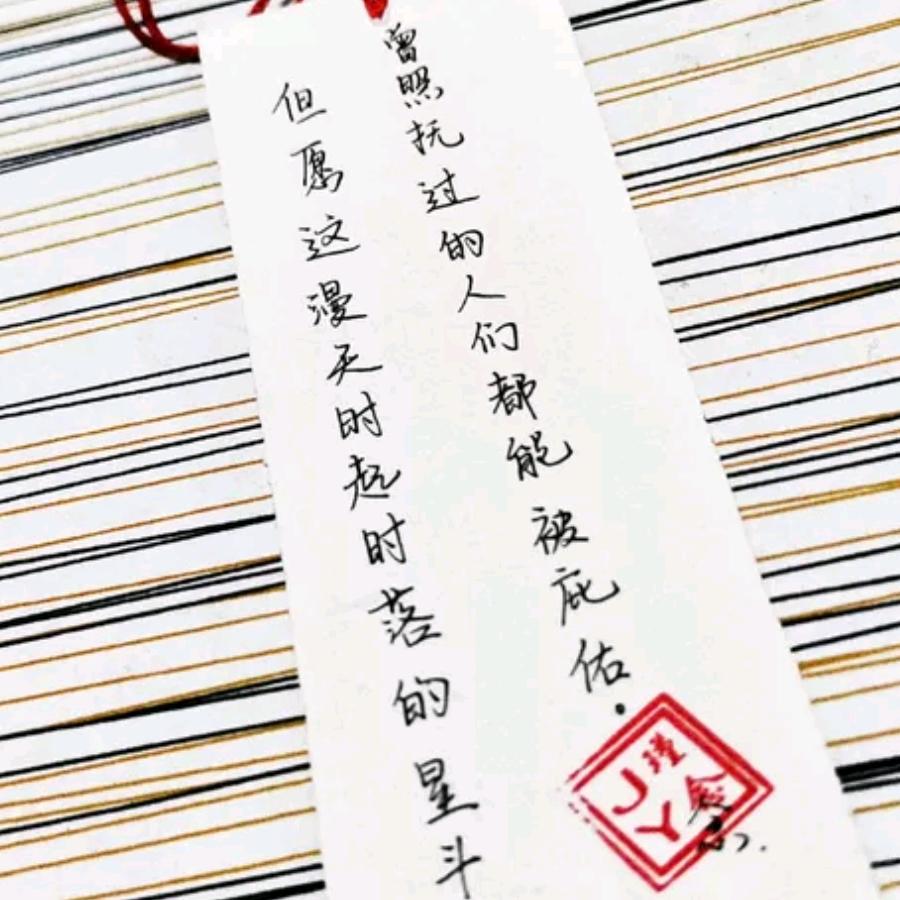 但愿这漫天时起时落的星斗
曾照抚过的人们都能被庇佑.
瑾
JY